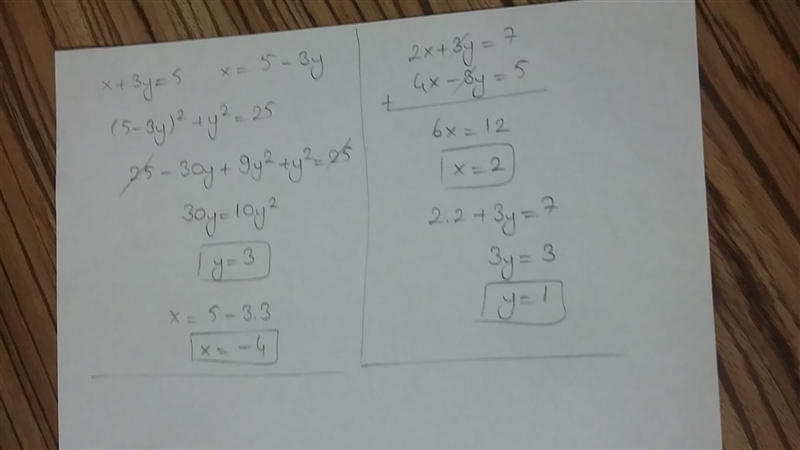 x+3y=5 x= 5-3y
(5-3y)²+y²=25
25-30y+9y²+y²=25
30y=10y²
y=3
x= 5-3.3
x=-4
2x+3y=7
4x-3y=5
+
6x=12
x=2
2.2+3y=7
3y=3
y=1